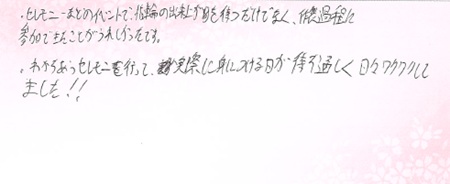 ・セレモニーなどのイベントで、指輪の出来上がりを待つだけでなく、作製過程に
参加できたことがうれしかったです。
・わかちあうセレモニーを行って、実際に身につける日が待ち遠しく日々ワクワクして
ました!!